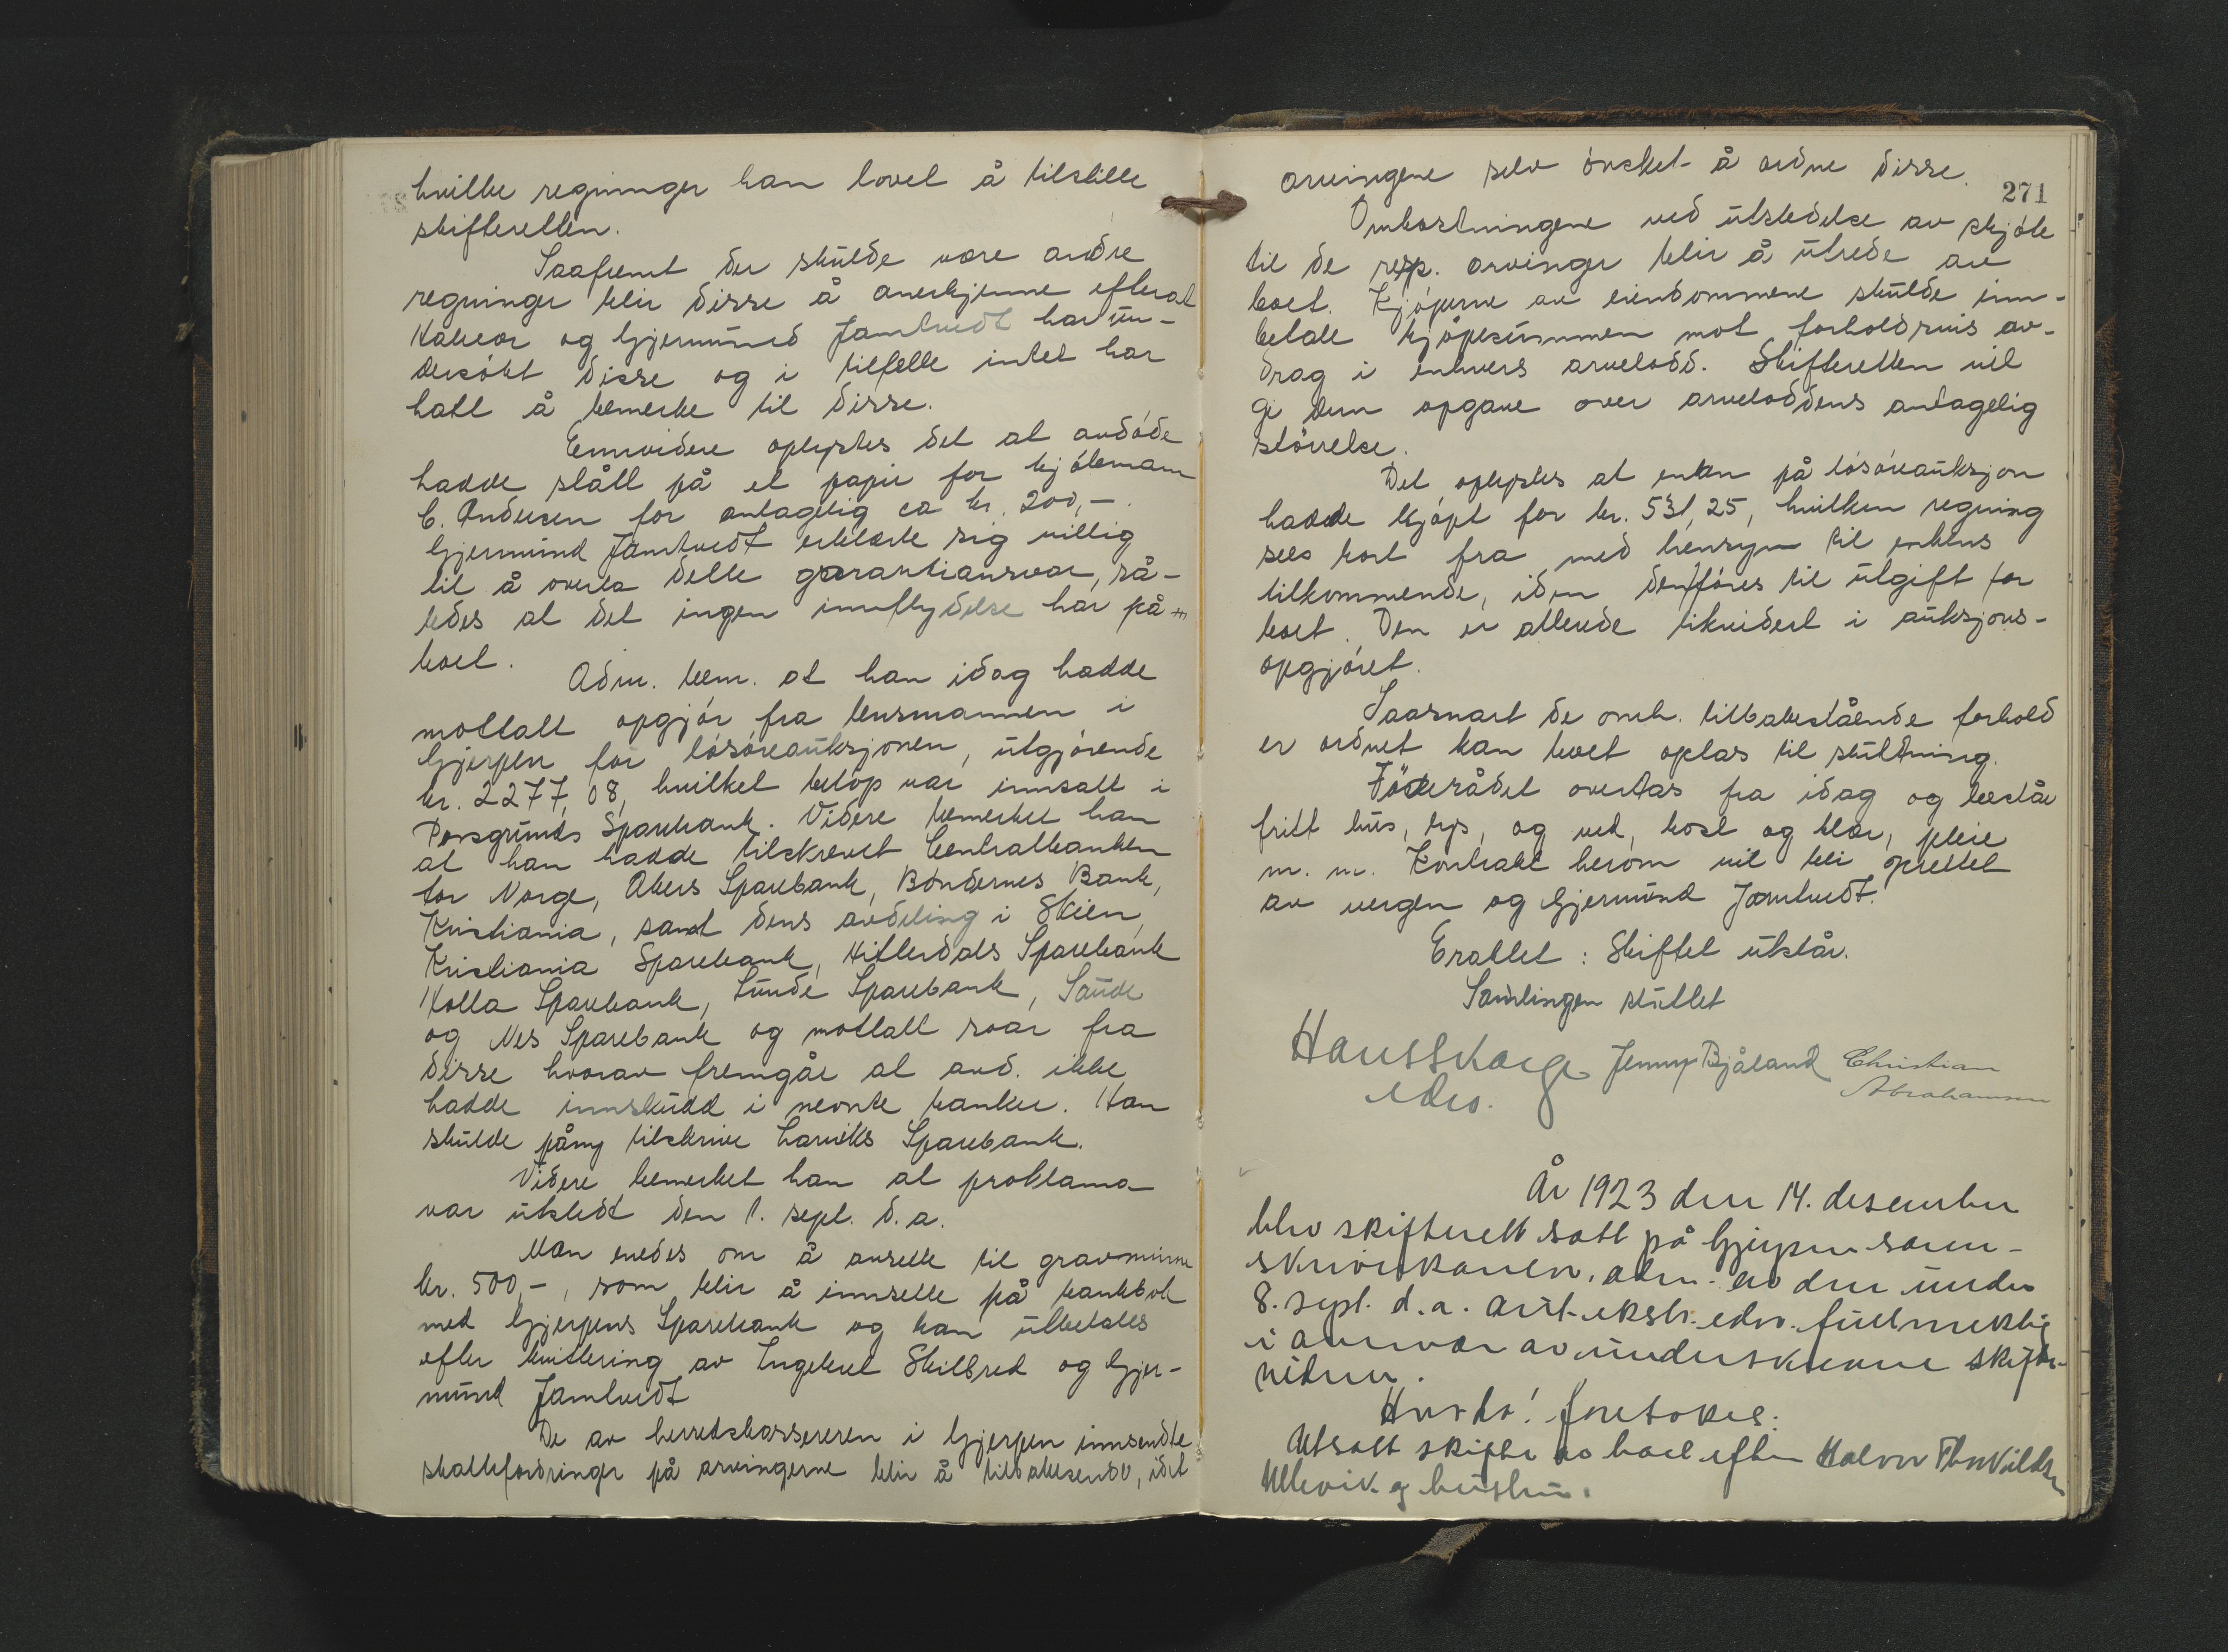 hvilke regninger han lovet å tilstille
skifteretten.
Saafremt der skulde være andre
regninger blir disse å anerkjenne efterat
Halvor og Gjermund Jamtvedt har un-
dersökt disse og i tilfelle intet har
hatt å bemerke til disse.
Ennvidere oplystes det at avdöde
hadde stått på et papir for kjöbmann
C. Andersen for antagelig ca kr. 200,-.
Gjermund Jamtvedt erklærte sig villig
til å overta dette garantiansvar, så-
ledes at det ingen innflydelse har på
boet.
Adm. bem. at han idag hadde
mottatt opgjör fra lensmannen i
Gjerpen for lösöreauksjonen, utgjörende
kr. 2277,08, hvilket belöp var innsatt i
Porsgrunds Sparebank. Videre bemerket han
at han hadde tilskrevet Centralbanken
for Norge, Akers Sparebank, Böndernes Bank,
Kristiania, samt dens avdeling i Skien,
Kristiania Sparebank, Hitterdals Sparebank
Holla Sparebank, Lunde Sparebank, Saude
og Nes Sparebank og mottatt svar fra
disse hvorav fremgår at avd. ikke
hadde innskudd i nevnte banker. Han
skulde påny tilskrive Larviks Sparebank.
Videre bemerket han at proklama
var utstedt den 1. sept. d.a.
Man enedes om å avsette til gravminne
kr. 500,-, som blir å innsette på bankbok
med Gjerpens Sparebank og kan utbetales
efter kvittering av Ingebret Skilbred og Gjer-
mund Jamtvedt
De av herredskassereren i Gjerpen innsendte
skattefordringer på arvingerne blir å tilbakesende, idet
271
arvingene selv önsket å ordne disse.
Omkostningene ved utstedelse av skjöte
til de resp. arvinger blir å utrede av
boet. Kjöperne av eiendommene skulde inn-
betale kjöpesummen mot forholdsvis av-
drag i enhvers arvelodd. Skifteretten vil
gi dem opgave over arveloddens antagelig
störrelse.
Det oplystes at enken på lösöreauksjon
hadde kjöpt for kr. 531,25, hvilken regning
sees bort fra med hensyn til enkens
tilkommende, idet den föres til utgift for
boet. Den er allerede likvidert i auksjons-
opgjöret.
Saasnart de omh. tilbakestående forhold
er ordnet kan boet optas til slutning.
Föderådet overtas fra idag og består
fritt hus, lys, og ved, kost og klær, pleie
m. m. Kontrakt herom vil bli oprettet
av vergen og Gjermund Jamtvedt.
Erattet: Skiftet utstår.
Samlingen sluttet
Hans Skarge Jenny Bjåland Christian
edsv. Abrahamsen
År 1923 den 14. desember
blev skifterett satt på Gjerpen soren-
skriverkontor, adm. av den under
8. sept. d.a. aut. ekstr. edsv. fullmektig
i nærvær av underskrevne skifte-
vidner.
Hvorda! foretokes:
Utsatt skifte av boet efter Halvor Thorkildsen
Ullevik og hustru.